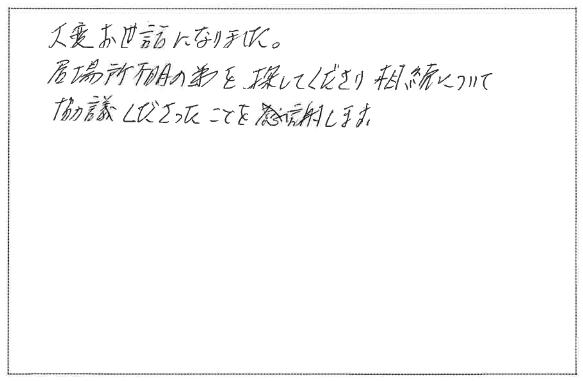 大変お世話になりました。
居場所不明の弟を探してくださり相続について
協議しださったことを感謝します。